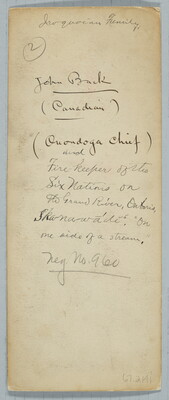 Iroquoian Family.
2
John Buck
(Canadian)
and
(Onondaga Chief)
Fire keeper of the
Six Nations on
the Grand River, Ontario,
"On
one side of a stream,"
Neg No. 960